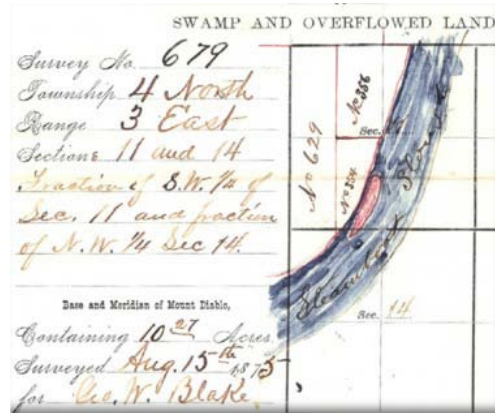 SWAMP AND OVERFLOWED LAND
Survey No. 679
Township 4 North
Range 3 East
Sections 11 and 14
Fraction of S.W. 1/4 of
Sec. 11 and fraction
of N.W. 1/4 Sec 14.
Base and Meridian of Mount Diablo,
Containing 10 27 Acres
Surveyed Aug. 15th 1875
for Geo. W. Blake
No 629
No 356
No 354
Sec. 11.
Steamboat Slough
Sec. 14